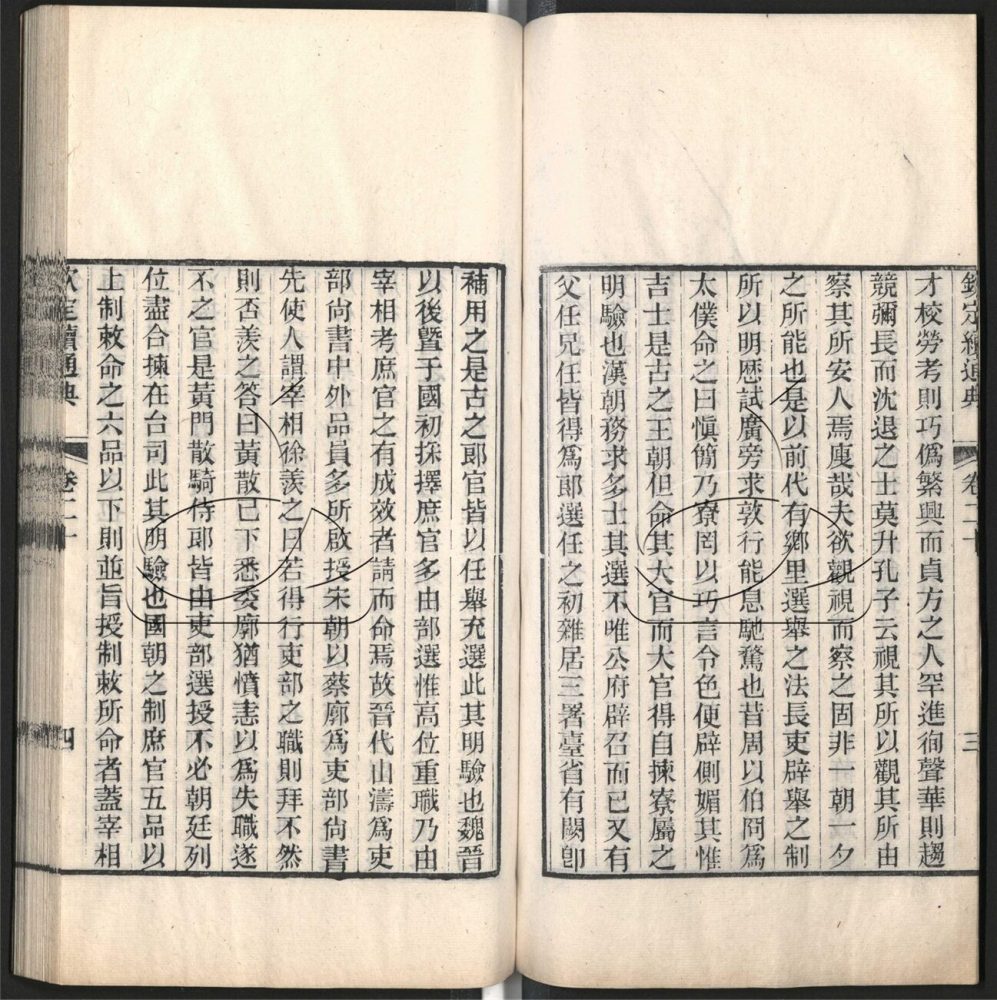 欽定續通典 卷二十 三
才校勞考則巧僞繁興而貞方之人罕進徇聲華則趨
競彌長而沈退之士莫升孔子云視其所以觀其所由
察其所安人焉廋哉夫欲觀視而察之固非一朝一夕
之所能也是以前代有鄉里選舉之法長吏辟舉之制
所以明歷試廣旁求敦行能息馳騖也昔周以伯冏爲
太僕命之曰愼簡乃寮罔以巧言令色便辟側媚其惟
吉士是古之王朝但命其大官而大官得自揀寮屬之
明驗也漢朝務求多士其選不唯公府辟召而已又有
父任兄任皆得爲郞選任之初雜居三署臺省有闕卽
補用之是古之郞官皆以任舉充選此其明驗也魏晉
以後曁于國初採擇庶官多由部選惟高位重職乃由
宰相考庶官之有成效者請而命焉故晉代山濤爲吏
部尙書中外品員多所啟授宋朝以蔡廓爲吏部尙書
先使人謂宰相徐羨之曰若得行吏部之職則拜不然
則否羨之答曰黃散已下悉委廓猶憤恚以爲失職遂
不之官是黃門散騎侍郞皆由吏部選授不必朝廷列
位盡合揀在台司此其明驗也國朝之制庶官五品以
上制敕命之六品以下則並旨授制敕所命者蓋宰相
欽定續通典 卷二十 四